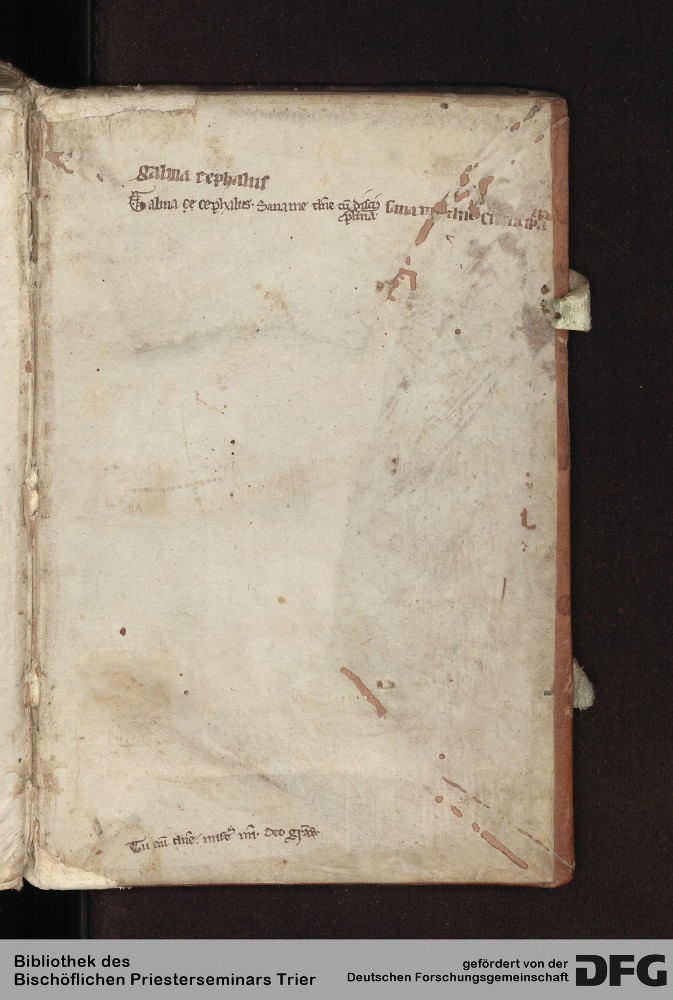 galina cephalus
Galina ce cephalus. Sana me dn̄e cū disci
plina
Tu aū dn̄e. miſe² nr̄i. deo gr̄as
Bibliothek des
Bischöflichen Priesterseminars Trier
gefördert von der
Deutschen Forschungsgemeinschaft
DFG